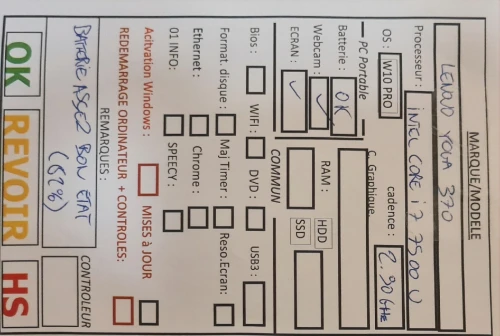 MARQUE/MODELE
LENOVO YOGA 370
Processeur : INTEL CORE i7 7500U
OS : W10 PRO cadence : 2.90GHz
PC Portable C. Graphique
Batterie : OK
Webcam : RAM :
ECRAN : HDD SSD
COMMUN
Bios : WIFI : DVD : USB3 :
Format. disque : Maj Timer : Reso.Ecran:
Ethernet : Chrome :
01 INFO: SPEECY :
Acitvation Windows : MISES à JOUR
REDEMARRAGE ORDINATEUR + CONTROLES:
REMARQUES :
BATTERIE ASSEZ BON ETAT
(82%)
CONTROLEUR
OK REVOIR HS